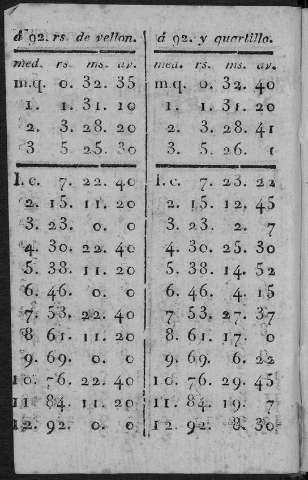 á 92. rs. de vellon.
med. rs. ms. av.
m.q. 0. 32. 35
1. 1. 31. 10
2. 3. 28. 20
3 5 25. 30
1.c. 7. 22. 40
2. 15. 11. 20
3. 23. 0. 0
4. 30. 22. 40
5. 38. 11. 20
6. 46. 0. 0
7. 53. 22. 40
8 61. 11. 20
9. 69. 0. 0
10. 76. 22. 40
11 84. 11. 20
12. 92. 0. 0
á 92. y quartillo.
med. rs. ms. av.
m.q. 0. 32. 40
1. 1. 31. 20
2. 3. 28. 41
3. 5. 26. 1
1.c. 7. 23. 22
2. 15. 12. 45
3. 23. 2. 7
4. 30. 25. 30
5. 38. 14. 52
6. 46. 4. 15
7 53. 27. 37
8. 61. 17. 0
9. 69. 6. 22
10. 76. 29. 45
11. 84. 19. 7
12. 92. 8. 30